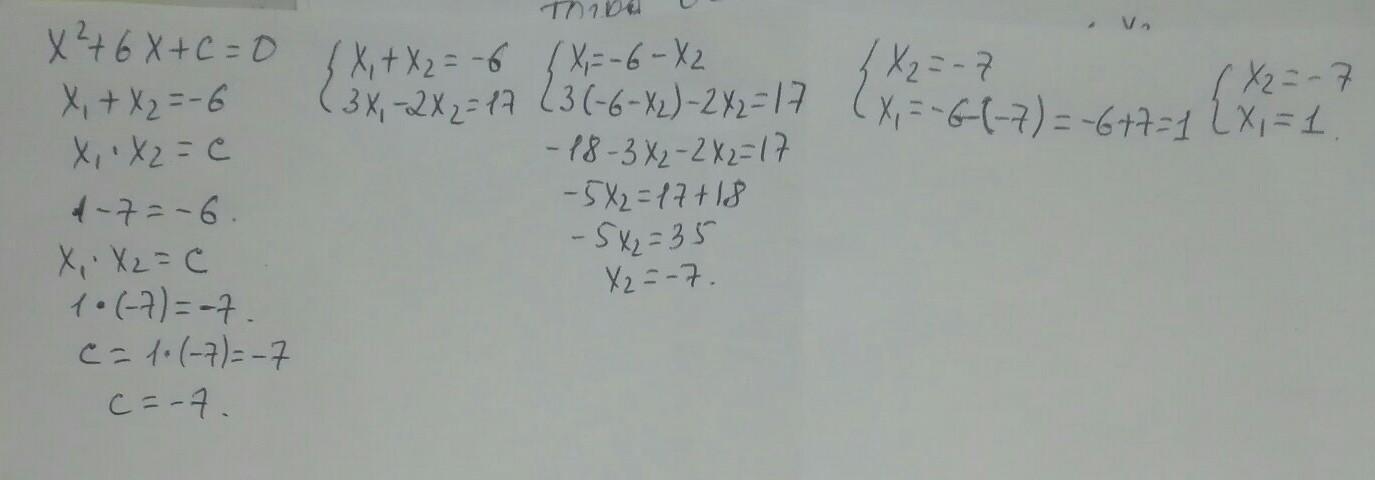 x²+6x+c=0
x₁+x₂=-6
x₁·x₂=c
1-7=-6.
x₁·x₂=c
1·(-7)=-7.
c=1·(-7)=-7
c=-7.
{x₁+x₂=-6
3x₁-2x₂=17
{x₁=-6-x₂
3(-6-x₂)-2x₂=17
-18-3x₂-2x₂=17
-5x₂=17+18
-5x₂=35
x₂=-7.
{x₂=-7
x₁=-6-(-7)=-6+7=1
{x₂=-7
x₁=1.